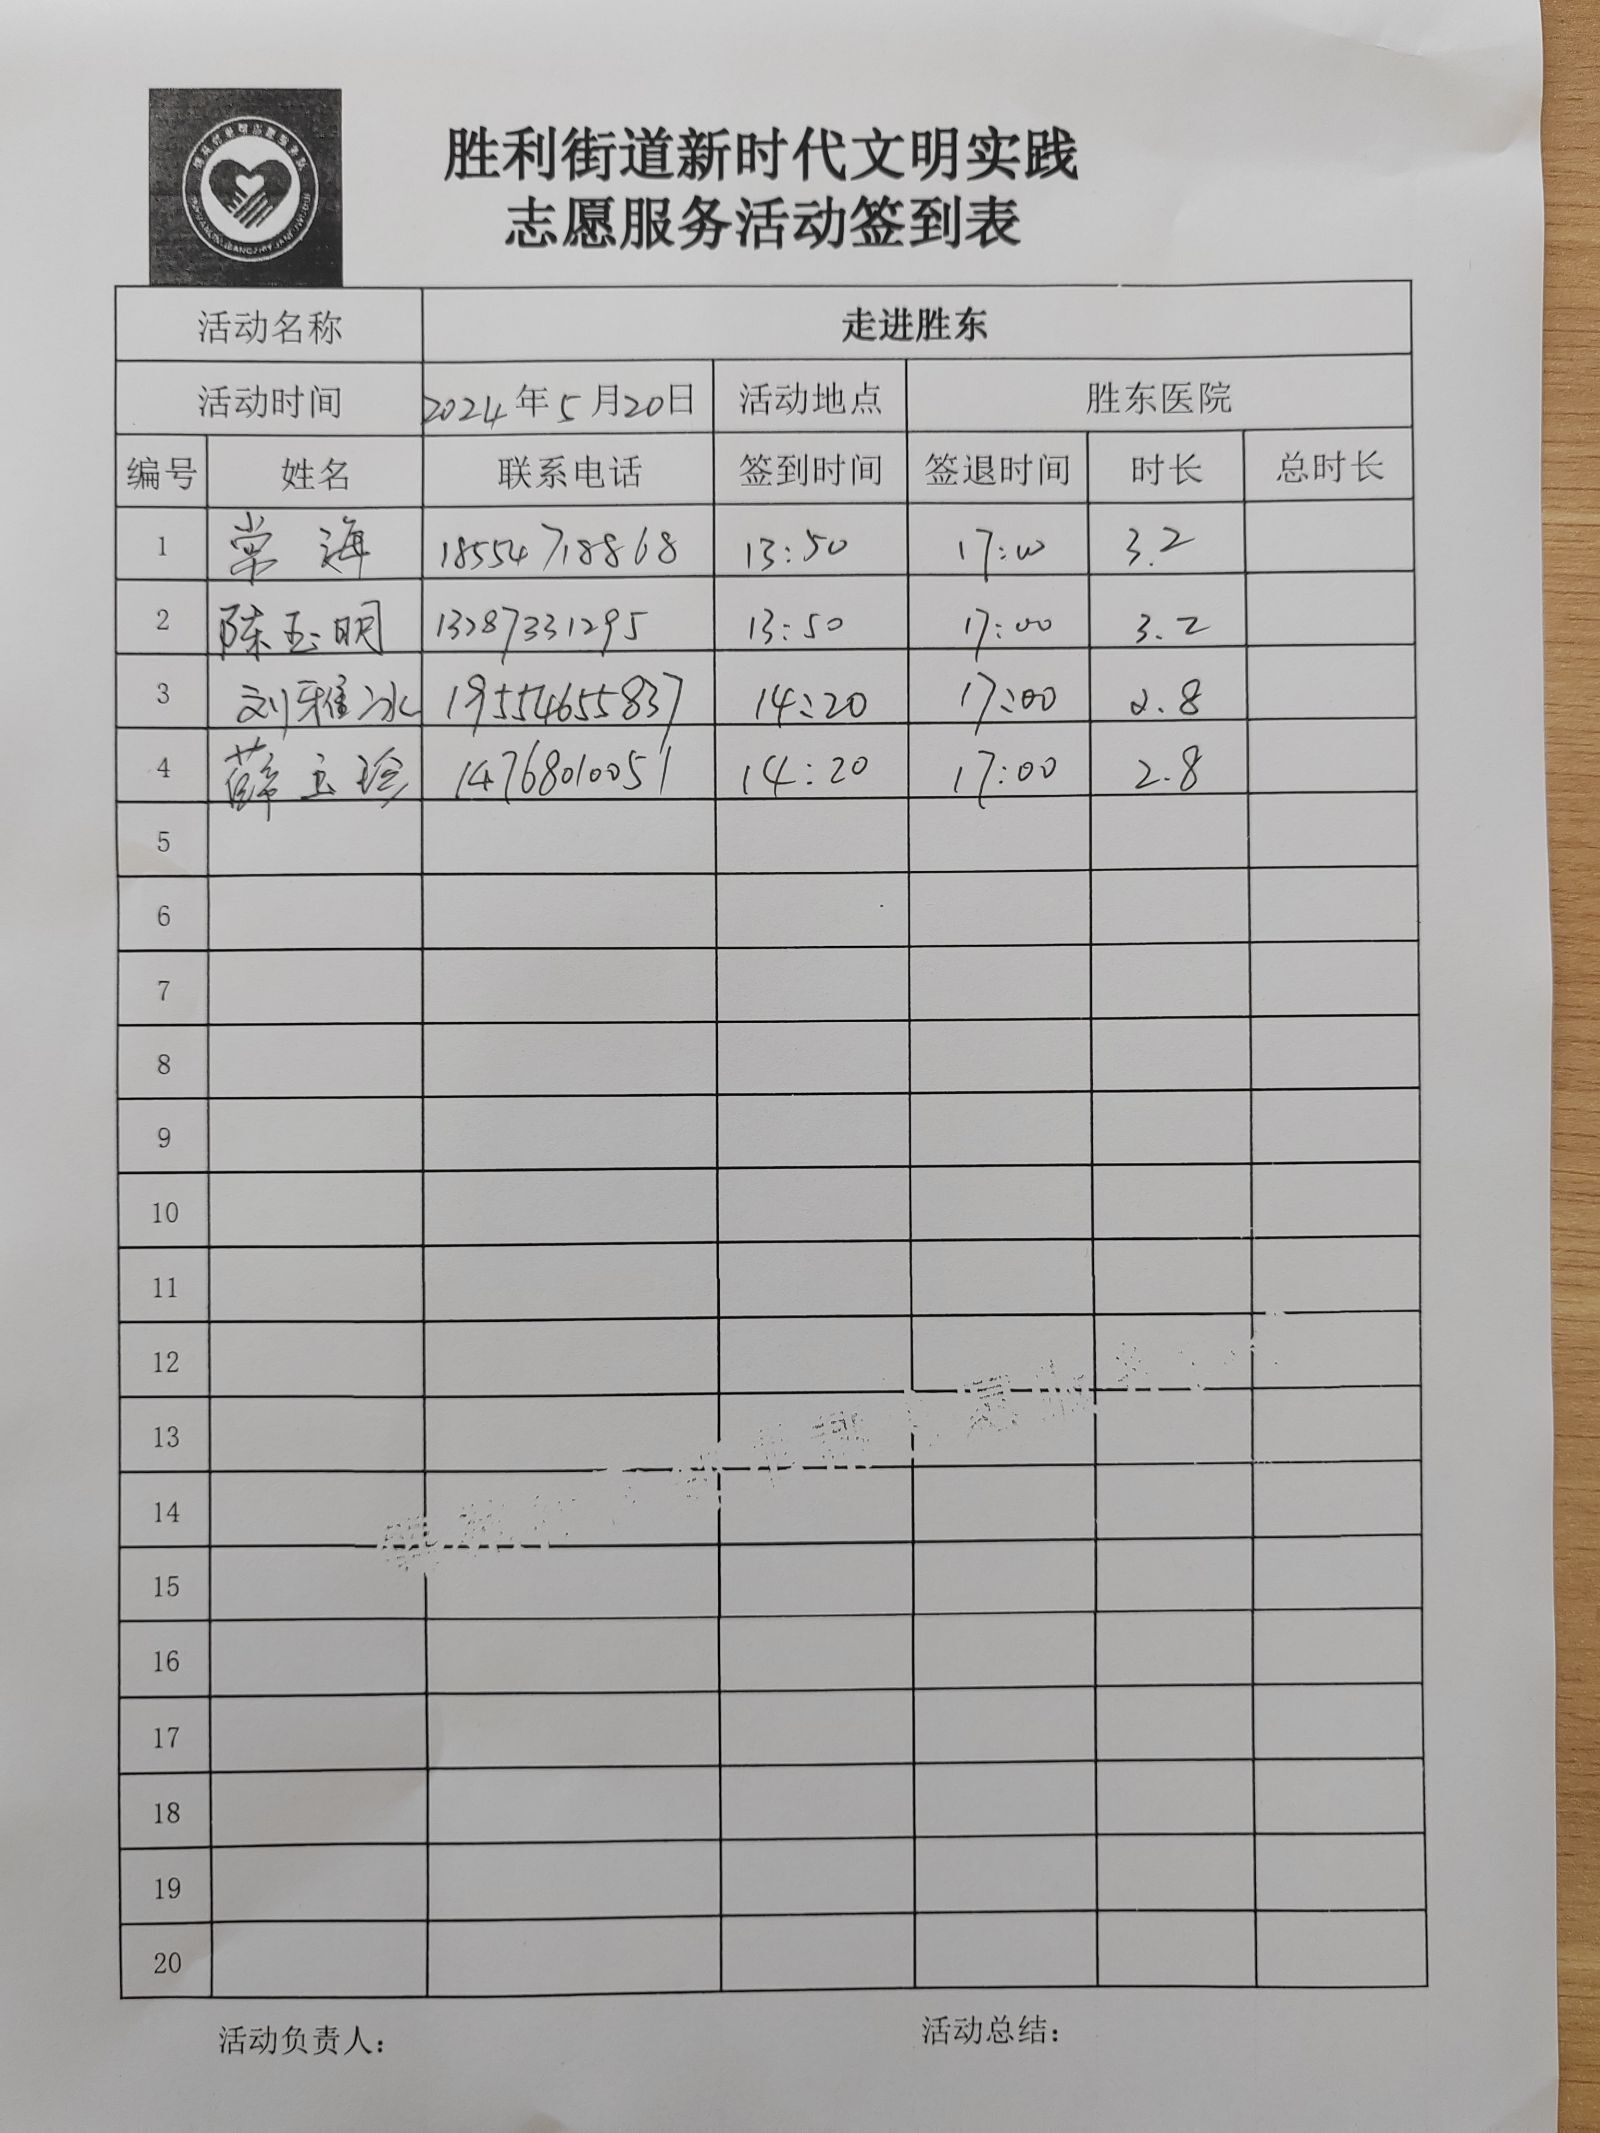 胜利街道新时代文明实践
志愿服务活动签到表
活动名称 走进胜东
活动时间 2024年5月20日 活动地点 胜东医院
编号 姓名 联系电话 签到时间 签退时间 时长 总时长
1 常海 18554718868 13:50 17:00 3.2
2 陈玉明 13287331295 13:50 17:00 3.2
3 刘雅冰 19554655837 14:20 17:00 2.8
4 薛玉珍 14768010051 14:20 17:00 2.8
5
6
7
8
9
10
11
12
13
14
15
16
17
18
19
20
活动负责人： 活动总结：